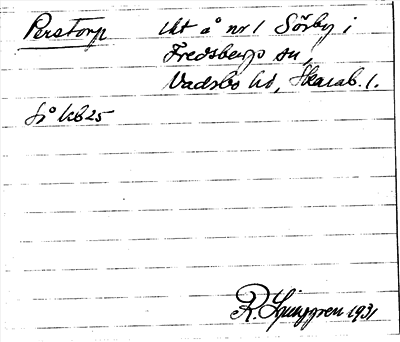 Perstorp tkt å nr 1 Sörby i
Fredsbergs sn,
Vadsbo hd, Skarab. l.
så kb 25
R. Ljunggren 1931